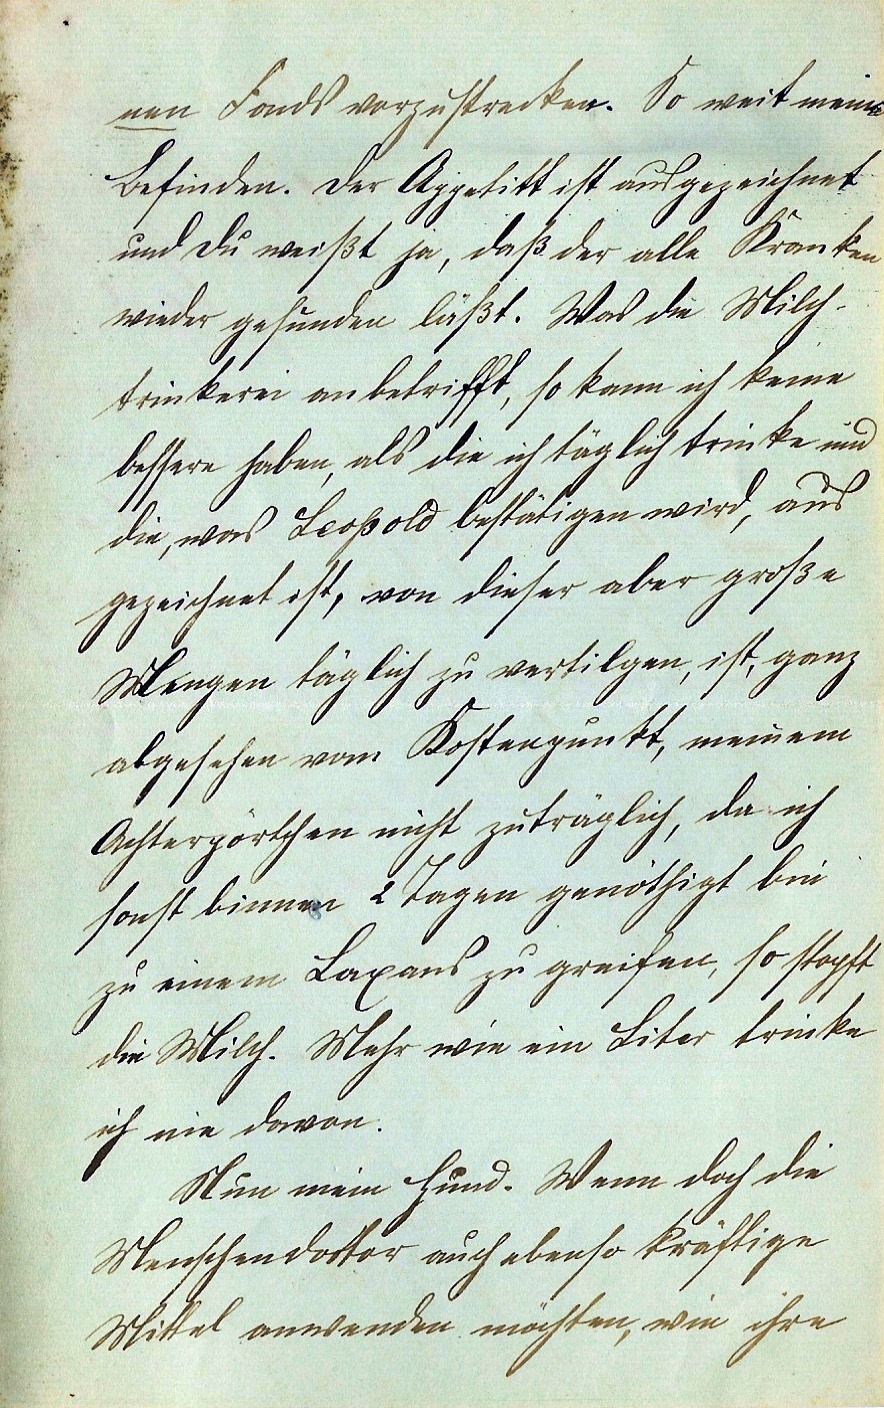 nen Fonds vorzustrecken. So weit mein
Befinden. Der Appetitt ist ausgezeichnet
und Du weißt ja, daß der alle Kranken
wieder gesunden läßt. Was die Milch-
trinkerei anbetrifft, so kann ich keine
bessere haben, als die ich täglich trinke und
die, was Leopold bestätigen wird, aus
gezeichnet ist, von dieser aber große
Mengen täglich zu vertilgen, ist, ganz
abgesehen vom Kostenpunkt, meinem
Achterpörtchen nicht zuträglich, da ich
sonst binnen 2 Tagen genöthigt bin
zu einem Laxans zu greifen, so stopft
die Milch. Mehr wie ein Liter trinke
ich nie davon.
Nun mein Hund. Wenn doch die
Menschendoktor auch ebenso kräftige
Mittel anwenden möchten, wie ihre